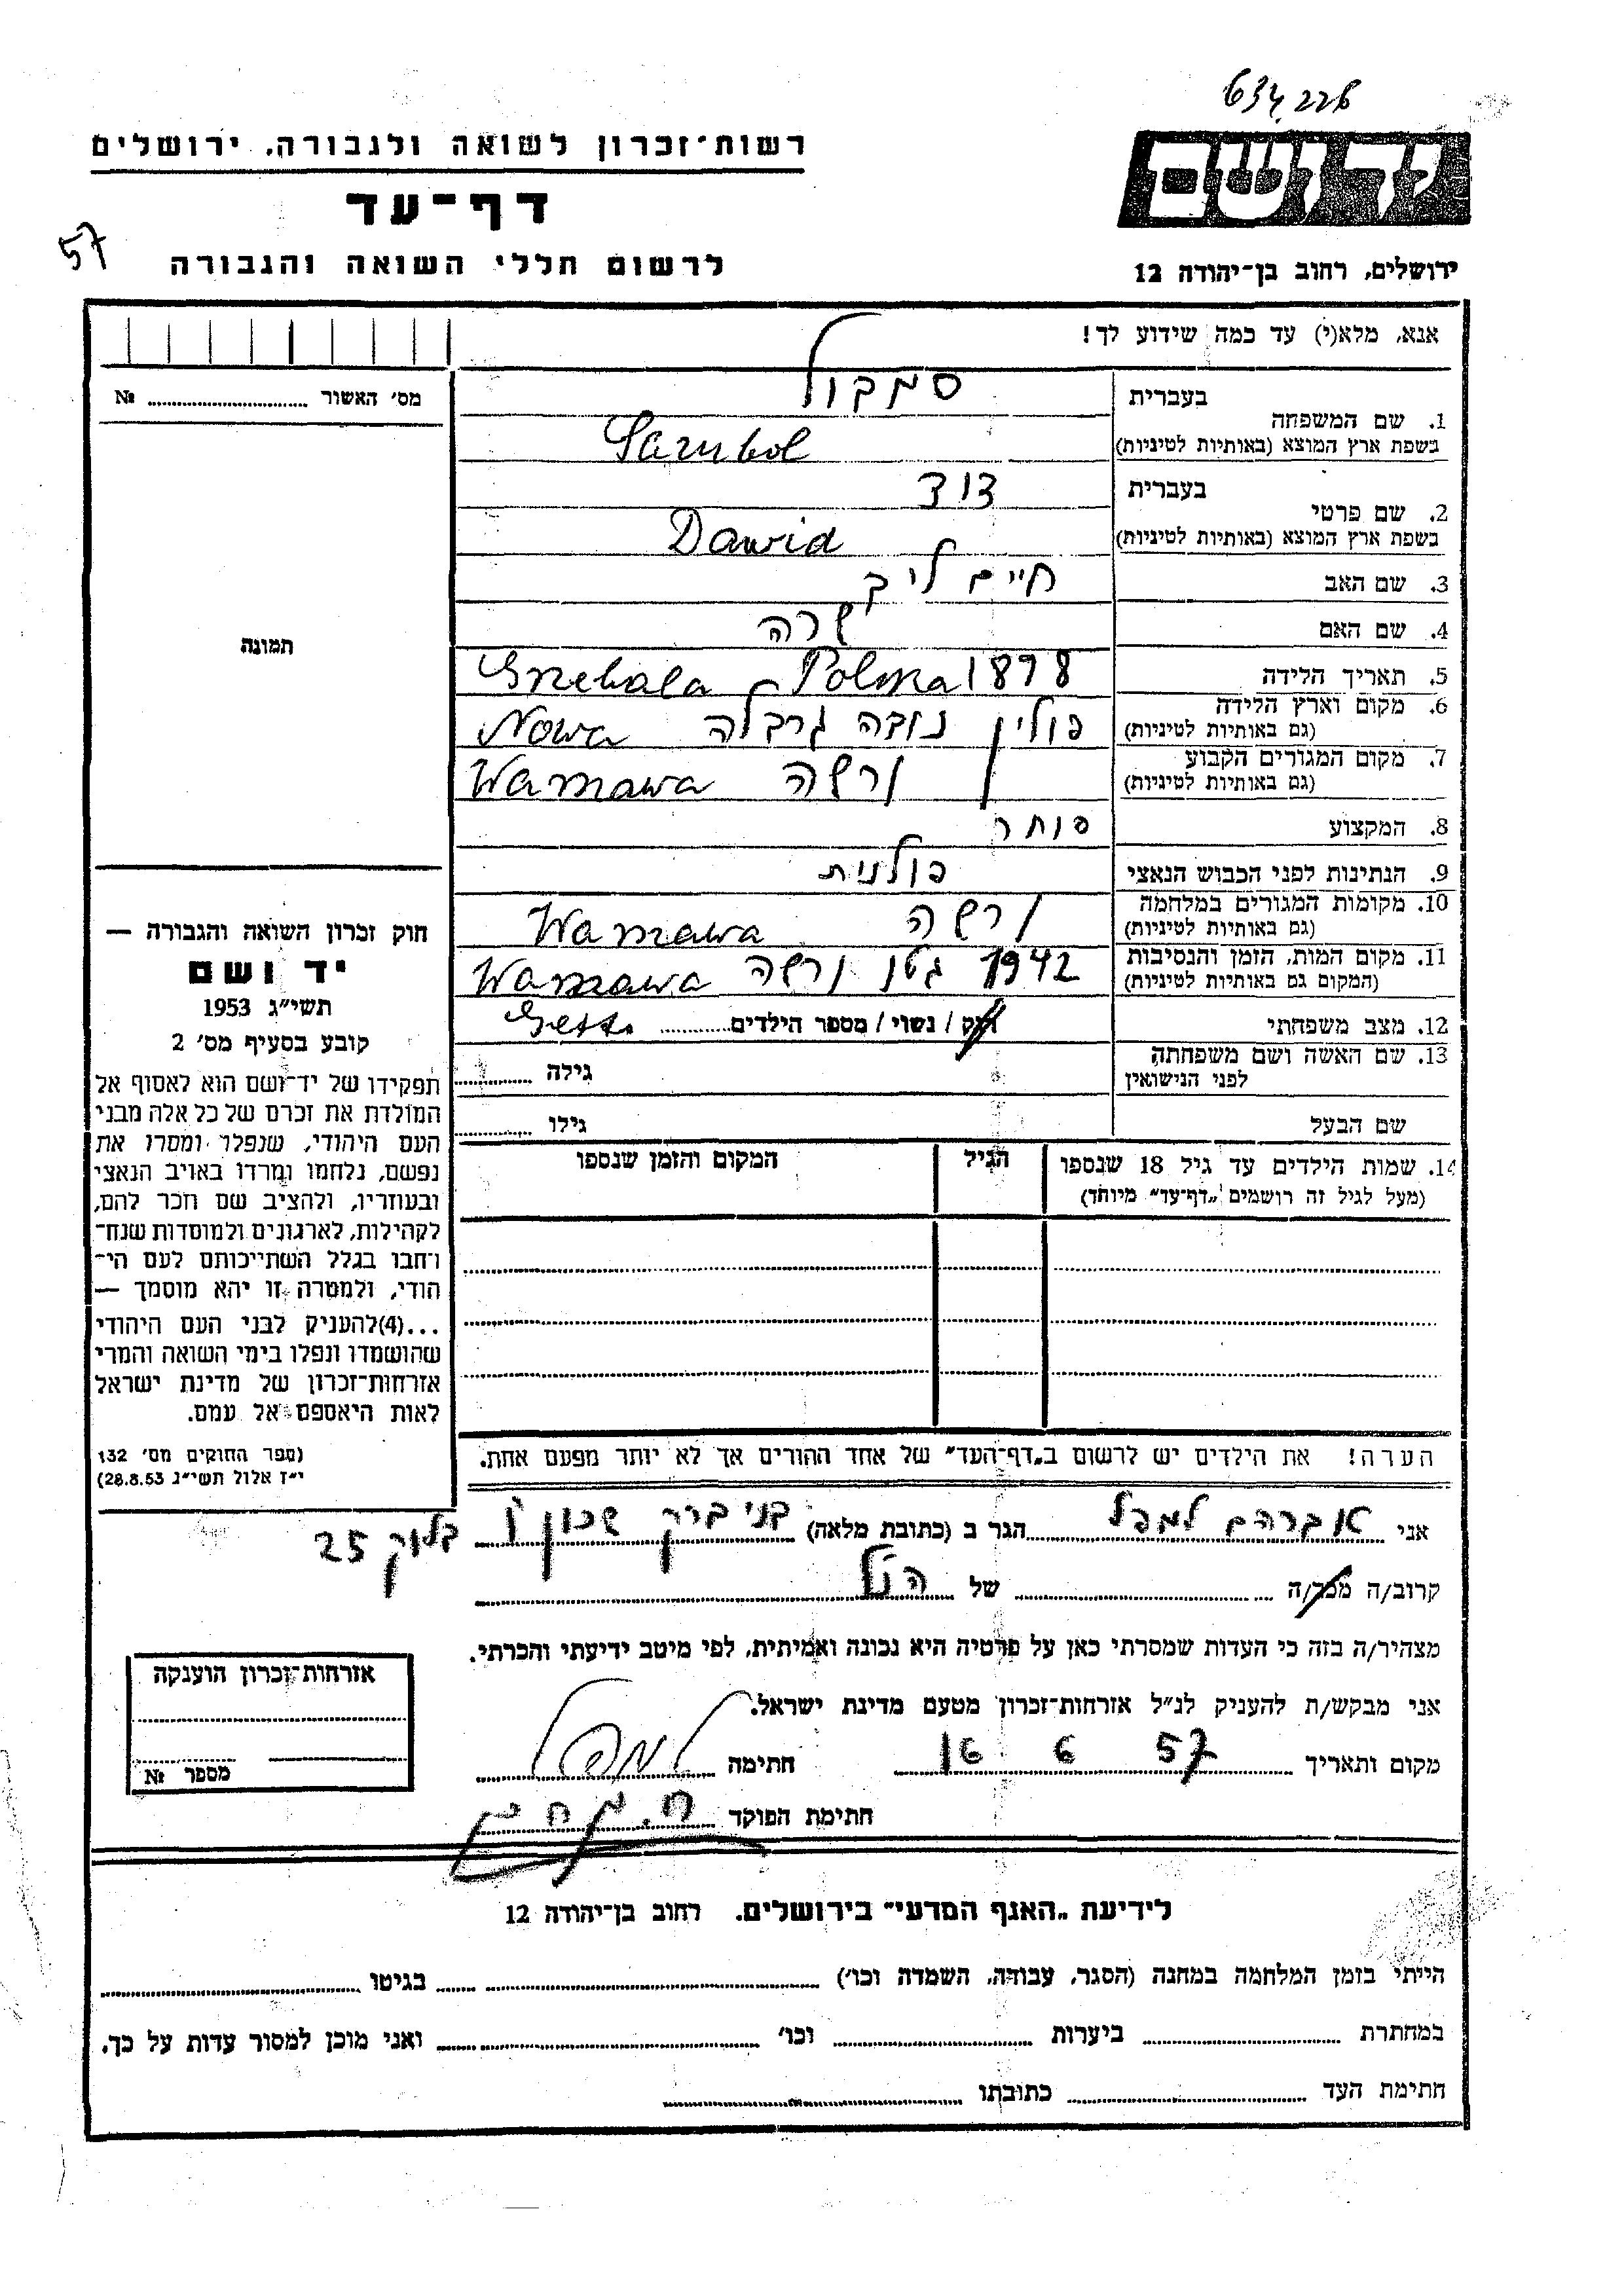 634226
רשות־זכרון לשואה ולגבורה, ירושלים
יד ושם
דף־עד
57
לרשום חללי השואה והגבורה
ירושלים, רחוב בן־יהודה 12
אנא, מלא(י) עד כמה שידוע לך!
מס' האשור № 
בעברית סמבול
1. שם המשפחה
בשפת ארץ המוצא (באותיות לטיניות) Sambol
בעברית דוד
2. שם פרטי
בשפת ארץ המוצא (באותיות לטיניות) Dawid
3. שם האב חיים ליב
4. שם האם שרה
תמונה
5. תאריך הלידה 1878 Polska
6. מקום וארץ הלידה
(גם באותיות לטיניות) פולין נובה גרבלה Nowa
7. מקום המגורים הקבוע
(גם באותיות לטיניות) ורשה Warszawa
8. המקצוע סוחר
9. הנתינות לפני הכבוש הנאצי פולנית
10. מקומות המגורים במלחמה
(גם באותיות לטיניות) ורשה Warszawa
11. מקום המות, הזמן והנסיבות
(המקום גם באותיות לטיניות) 1942 גטו ורשה Warszawa
12. מצב משפחתי רווק / נשוי / מספר הילדים Getto
13. שם האשה ושם משפחתה
לפני הנישואין גילה
שם הבעל גילו
14. שמות הילדים עד גיל 18 שנספו הגיל המקום והזמן שנספו
(מעל לגיל זה רושמים „דף־עד" מיוחד)
חוק זכרון השואה והגבורה —
יד ושם
תשי"ג 1953
קובע בסעיף מס' 2
תפקידו של יד־ושם הוא לאסוף אל
המולדת את זכרם של כל אלה מבני
העם היהודי, שנפלו ומסרו את
נפשם, נלחמו ומרדו באויב הנאצי
ובעוזריו, ולהציב שם וזכר להם,
לקהילות, לארגונים ולמוסדות שנח־
רבו בגלל השתייכותם לעם הי־
הודי, ולמטרה זו יהא מוסמך —
...(4)להעניק לבני העם היהודי
שהושמדו ונפלו בימי השואה והמרי
אזרחות־זכרון של מדינת ישראל
לאות היאספם אל עמם.
(ספר החוקים מס' 132
י"ז אלול תשי"ג 28.8.53)
הערה! את הילדים יש לרשום ב„דף־העד" של אחד ההורים אך לא יותר מפעם אחת.
אני אברהם למפל הגר ב (כתובת מלאה) בני ברק שכון ו בלוק 25
קרוב/ה מכר/ה של הנ"ל
מצהיר/ה בזה כי העדות שמסרתי כאן על פרטיה היא נכונה ואמיתית, לפי מיטב ידיעתי והכרתי.
אני מבקש/ת להעניק לנ"ל אזרחות־זכרון מטעם מדינת ישראל.
מקום ותאריך 16 6 57 חתימה למפל
חתימת הפוקד
אזרחות־זכרון הוענקה
מספר №
לידיעת „האגף המדעי" בירושלים. רחוב בן־יהודה 12
הייתי בזמן המלחמה במחנה (הסגר, עבודה, השמדה וכו') בגיטו
במחתרת ביערות וכו' ואני מוכן למסור עדות על כך.
חתימת העד כתובתו